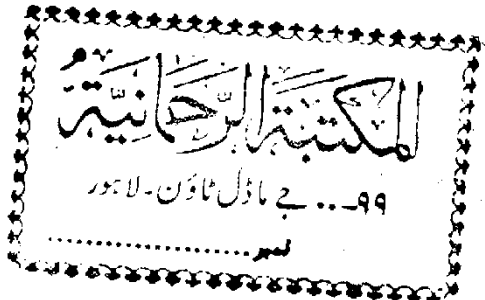 المكتبة الرحمانية
۹۹ـ.. جے ماڈل ٹاؤن ـ لاہور
نمبر....................